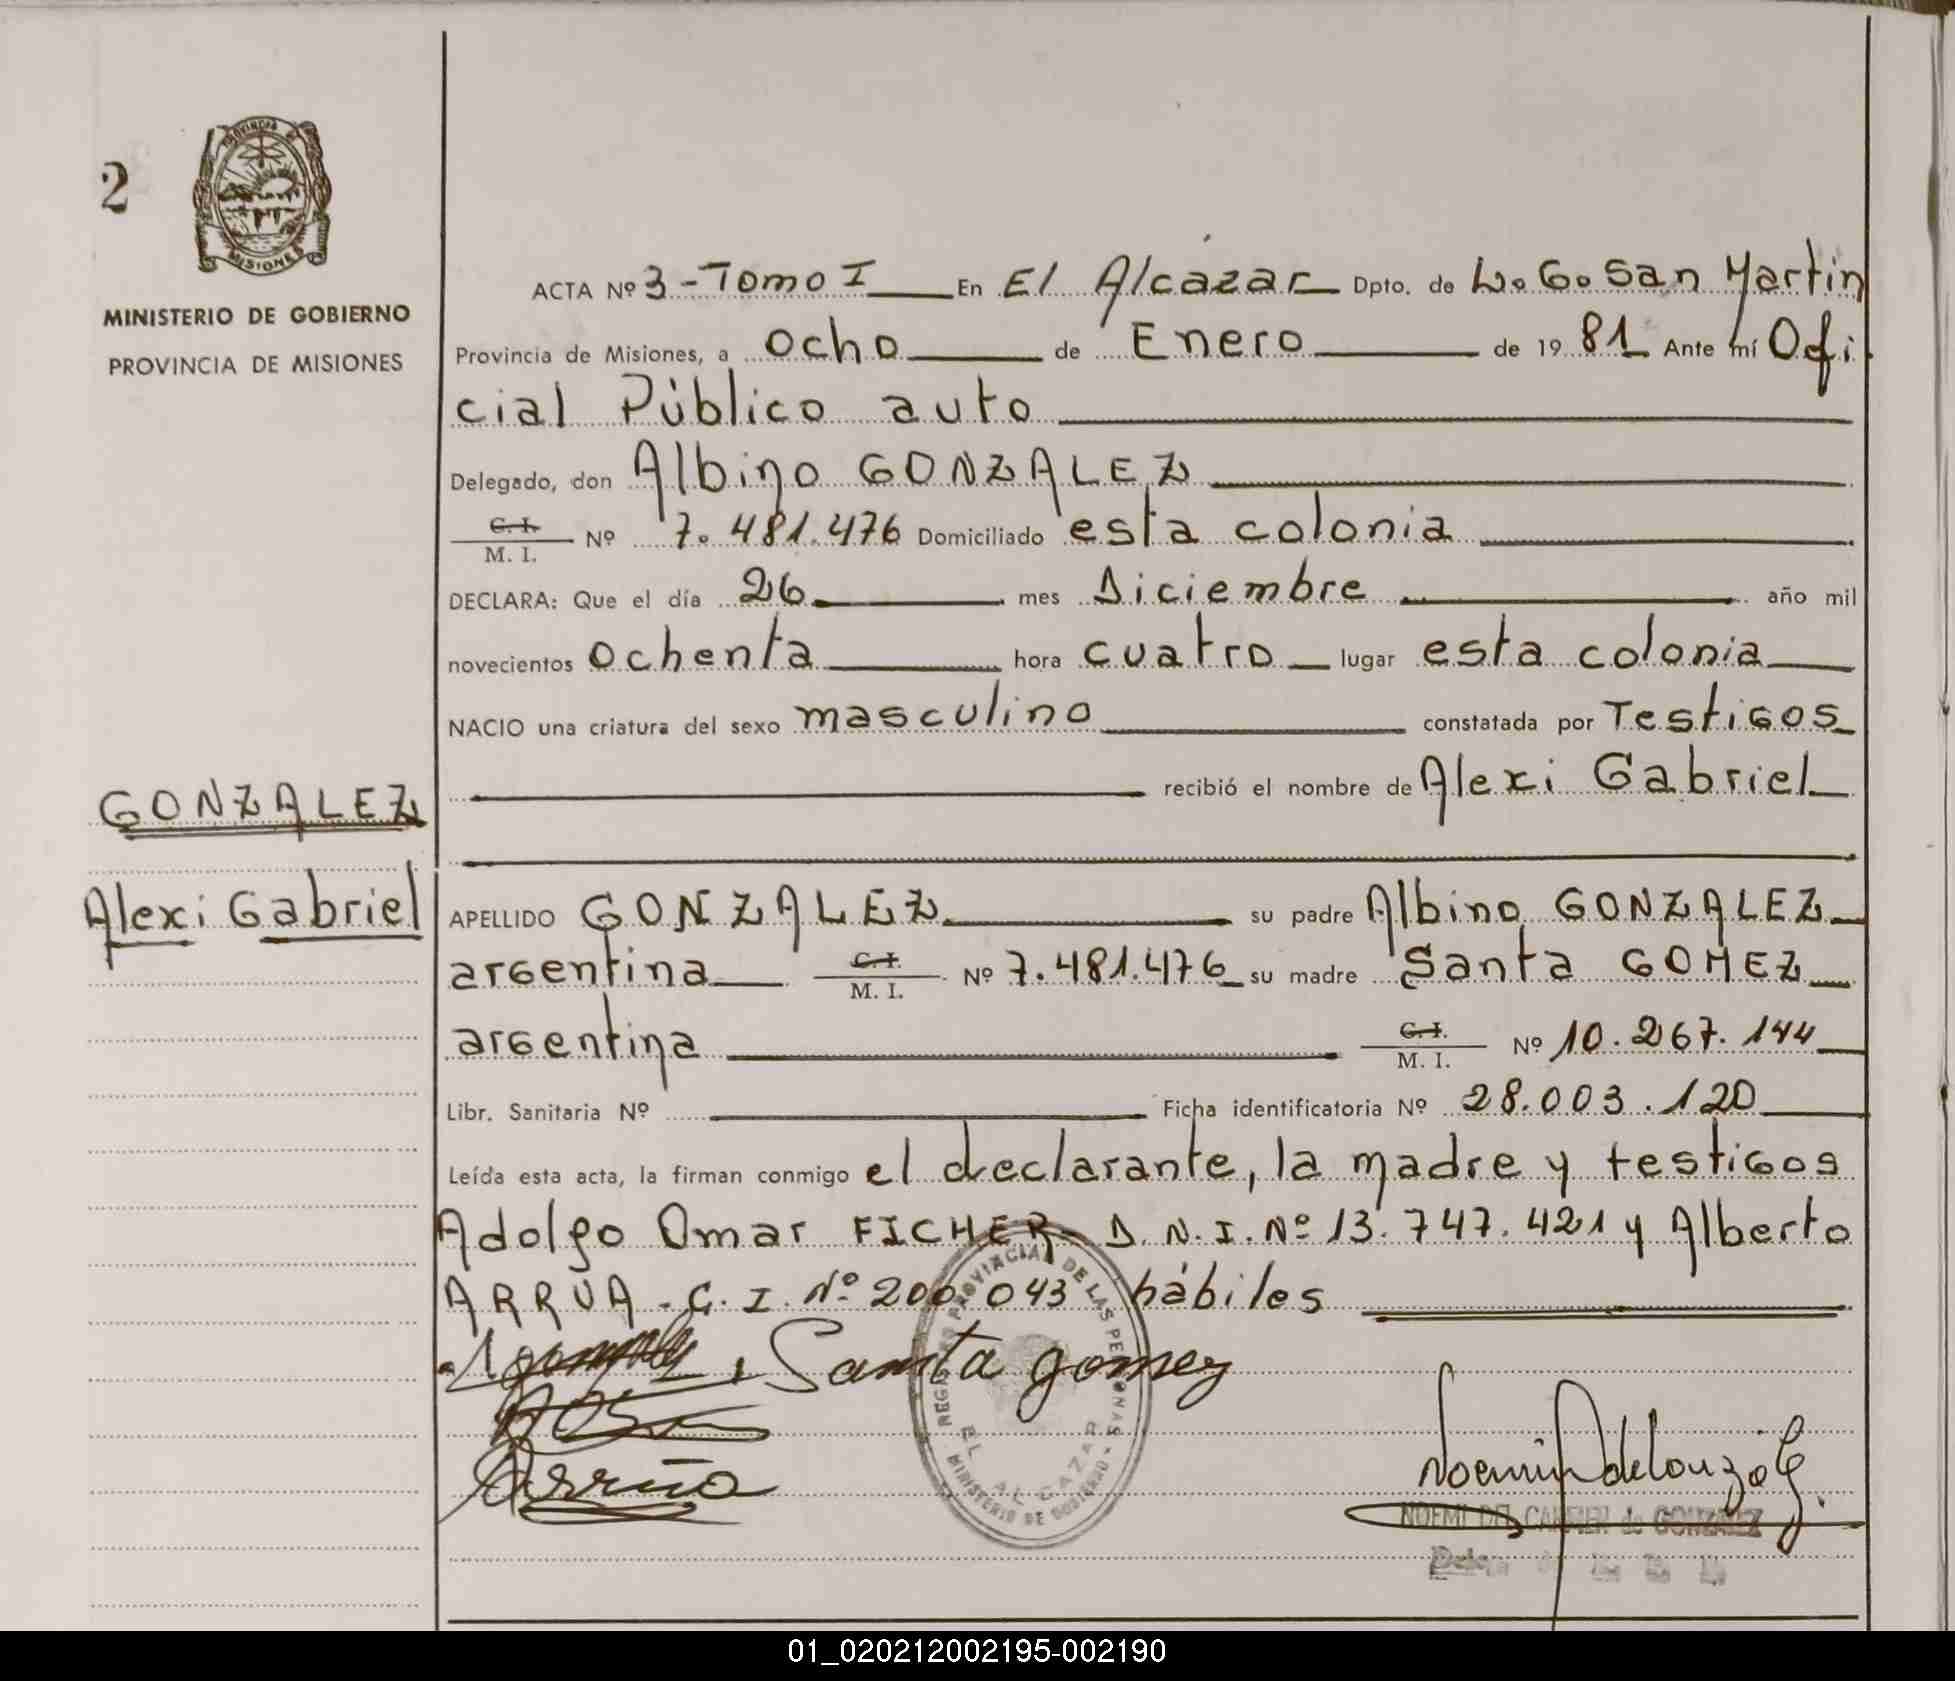 2
PROVINCIA DE
MISIONES
MINISTERIO DE GOBIERNO
PROVINCIA DE MISIONES
GONZALEZ
Alexi Gabriel
ACTA Nº 3-Tomo I En El Alcázar Dpto. de L.G.San Martín
Provincia de Misiones, a ocho de Enero de 1981 Ante mí Ofi
cial Público auto
Delegado, don Albino GONZALEZ
C. I.
M. I. Nº 7.481.476 Domiciliado esta colonia
DECLARA: Que el día 26 mes Diciembre año mil
novecientos ochenta hora cuatro lugar esta colonia
NACIO una criatura del sexo masculino constatada por Testigos
recibió el nombre de Alexi Gabriel
APELLIDO GONZALEZ su padre Albino GONZALEZ
argentina C. I. M. I. Nº 7.481.476 su madre Santa GOMEZ
argentina C. I. M. I. Nº 10.267.144
Libr. Sanitaria Nº Ficha identificatoria Nº 28.003.120
Leída esta acta, la firman conmigo el declarante, la madre y testigos
Adolfo Omar FICHER D.N.I.Nº 13.747.421 y Alberto
ARRUA-C.I.Nº 200.043 hábiles
Santa gomez
Arrúa
REGISTRO PROVINCIAL DE LAS PERSONAS
EL ALCAZAR
MINISTERIO DE GOBIERNO
NOEMI DEL CARMEN de GONZALEZ
01_020212002195-002190